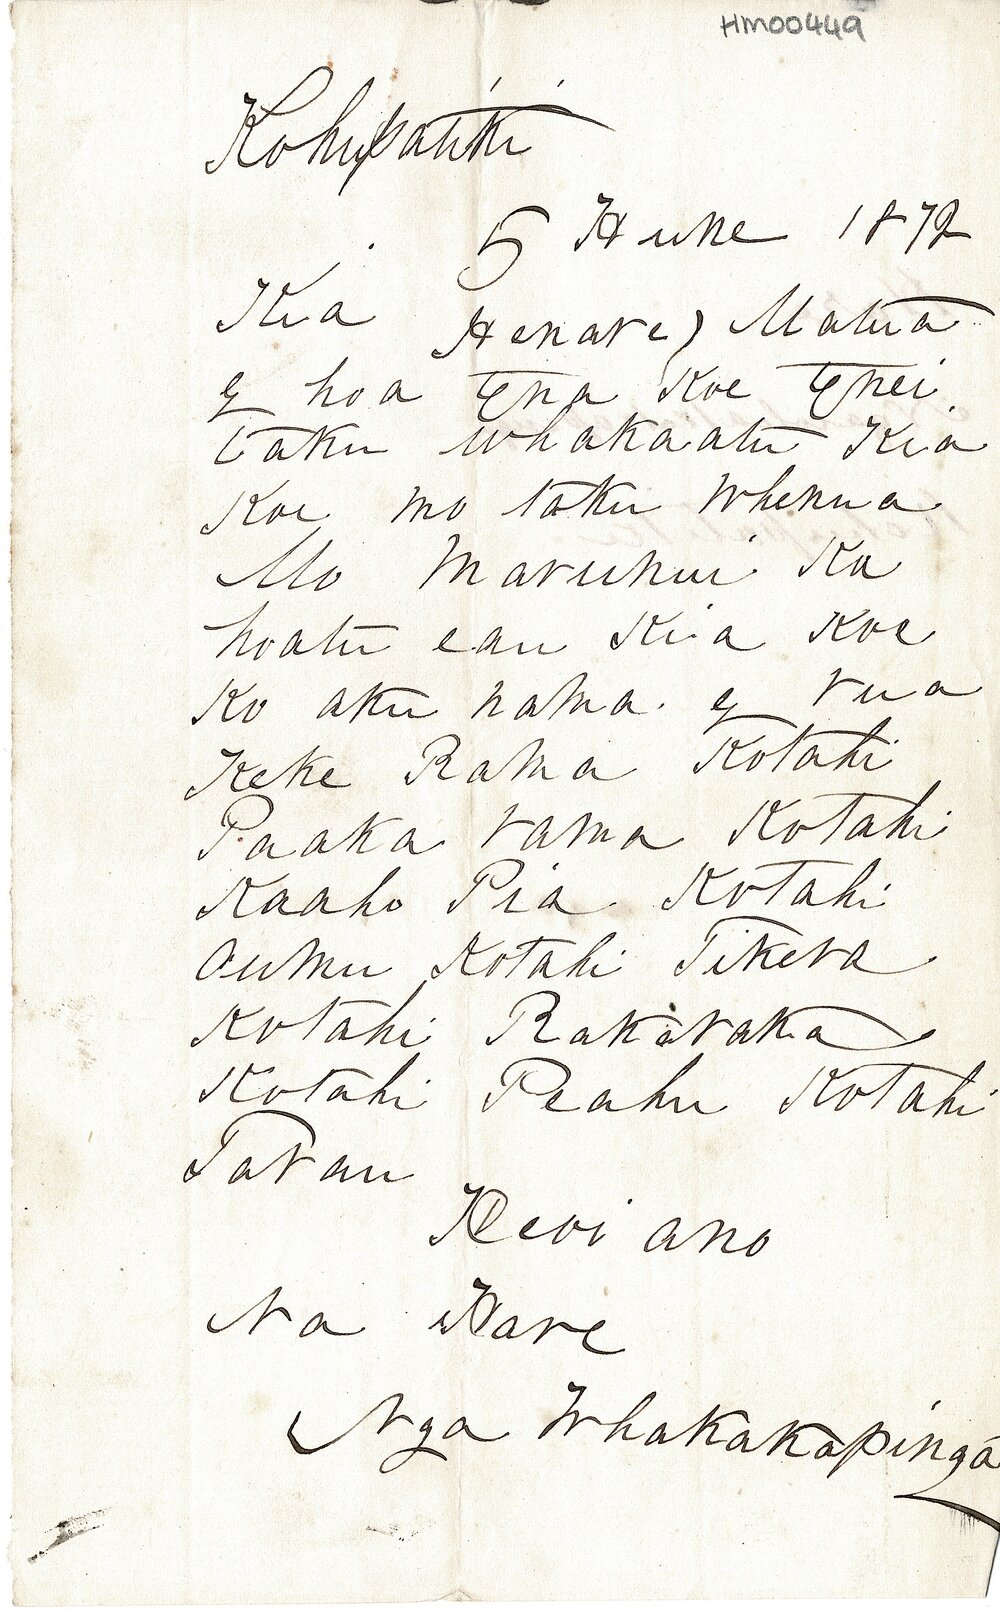 HM00449
Kohupatiki
5 Hune 1872
Kia Henare) Matua
E hoa Tena Koe Tenei
taku whakaatu Kia
Koe mo taku Whenua
Mo Maruhui Ka
hoatu eau Kia Koe
Ko aku nama. e rua
Keke Rama Kotahi
Paaka rama Kotahi
Kaaho Pia Kotahi
Aumu Kotahi Tikera
Kotahi Rakaraka
Kotahi Peahu Kotahi
Tarau
Heoi ano
Na Hare
Nga Whakakapinga